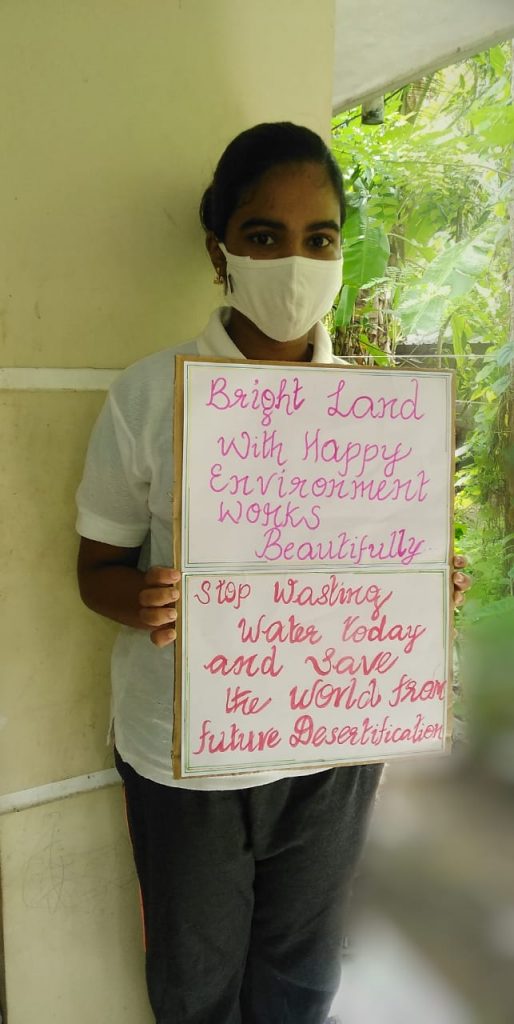 Bright Land
With Happy
Environment
Works
Beautifully..
Stop Wasting
Water Today
and Save
the World from
future Desertification